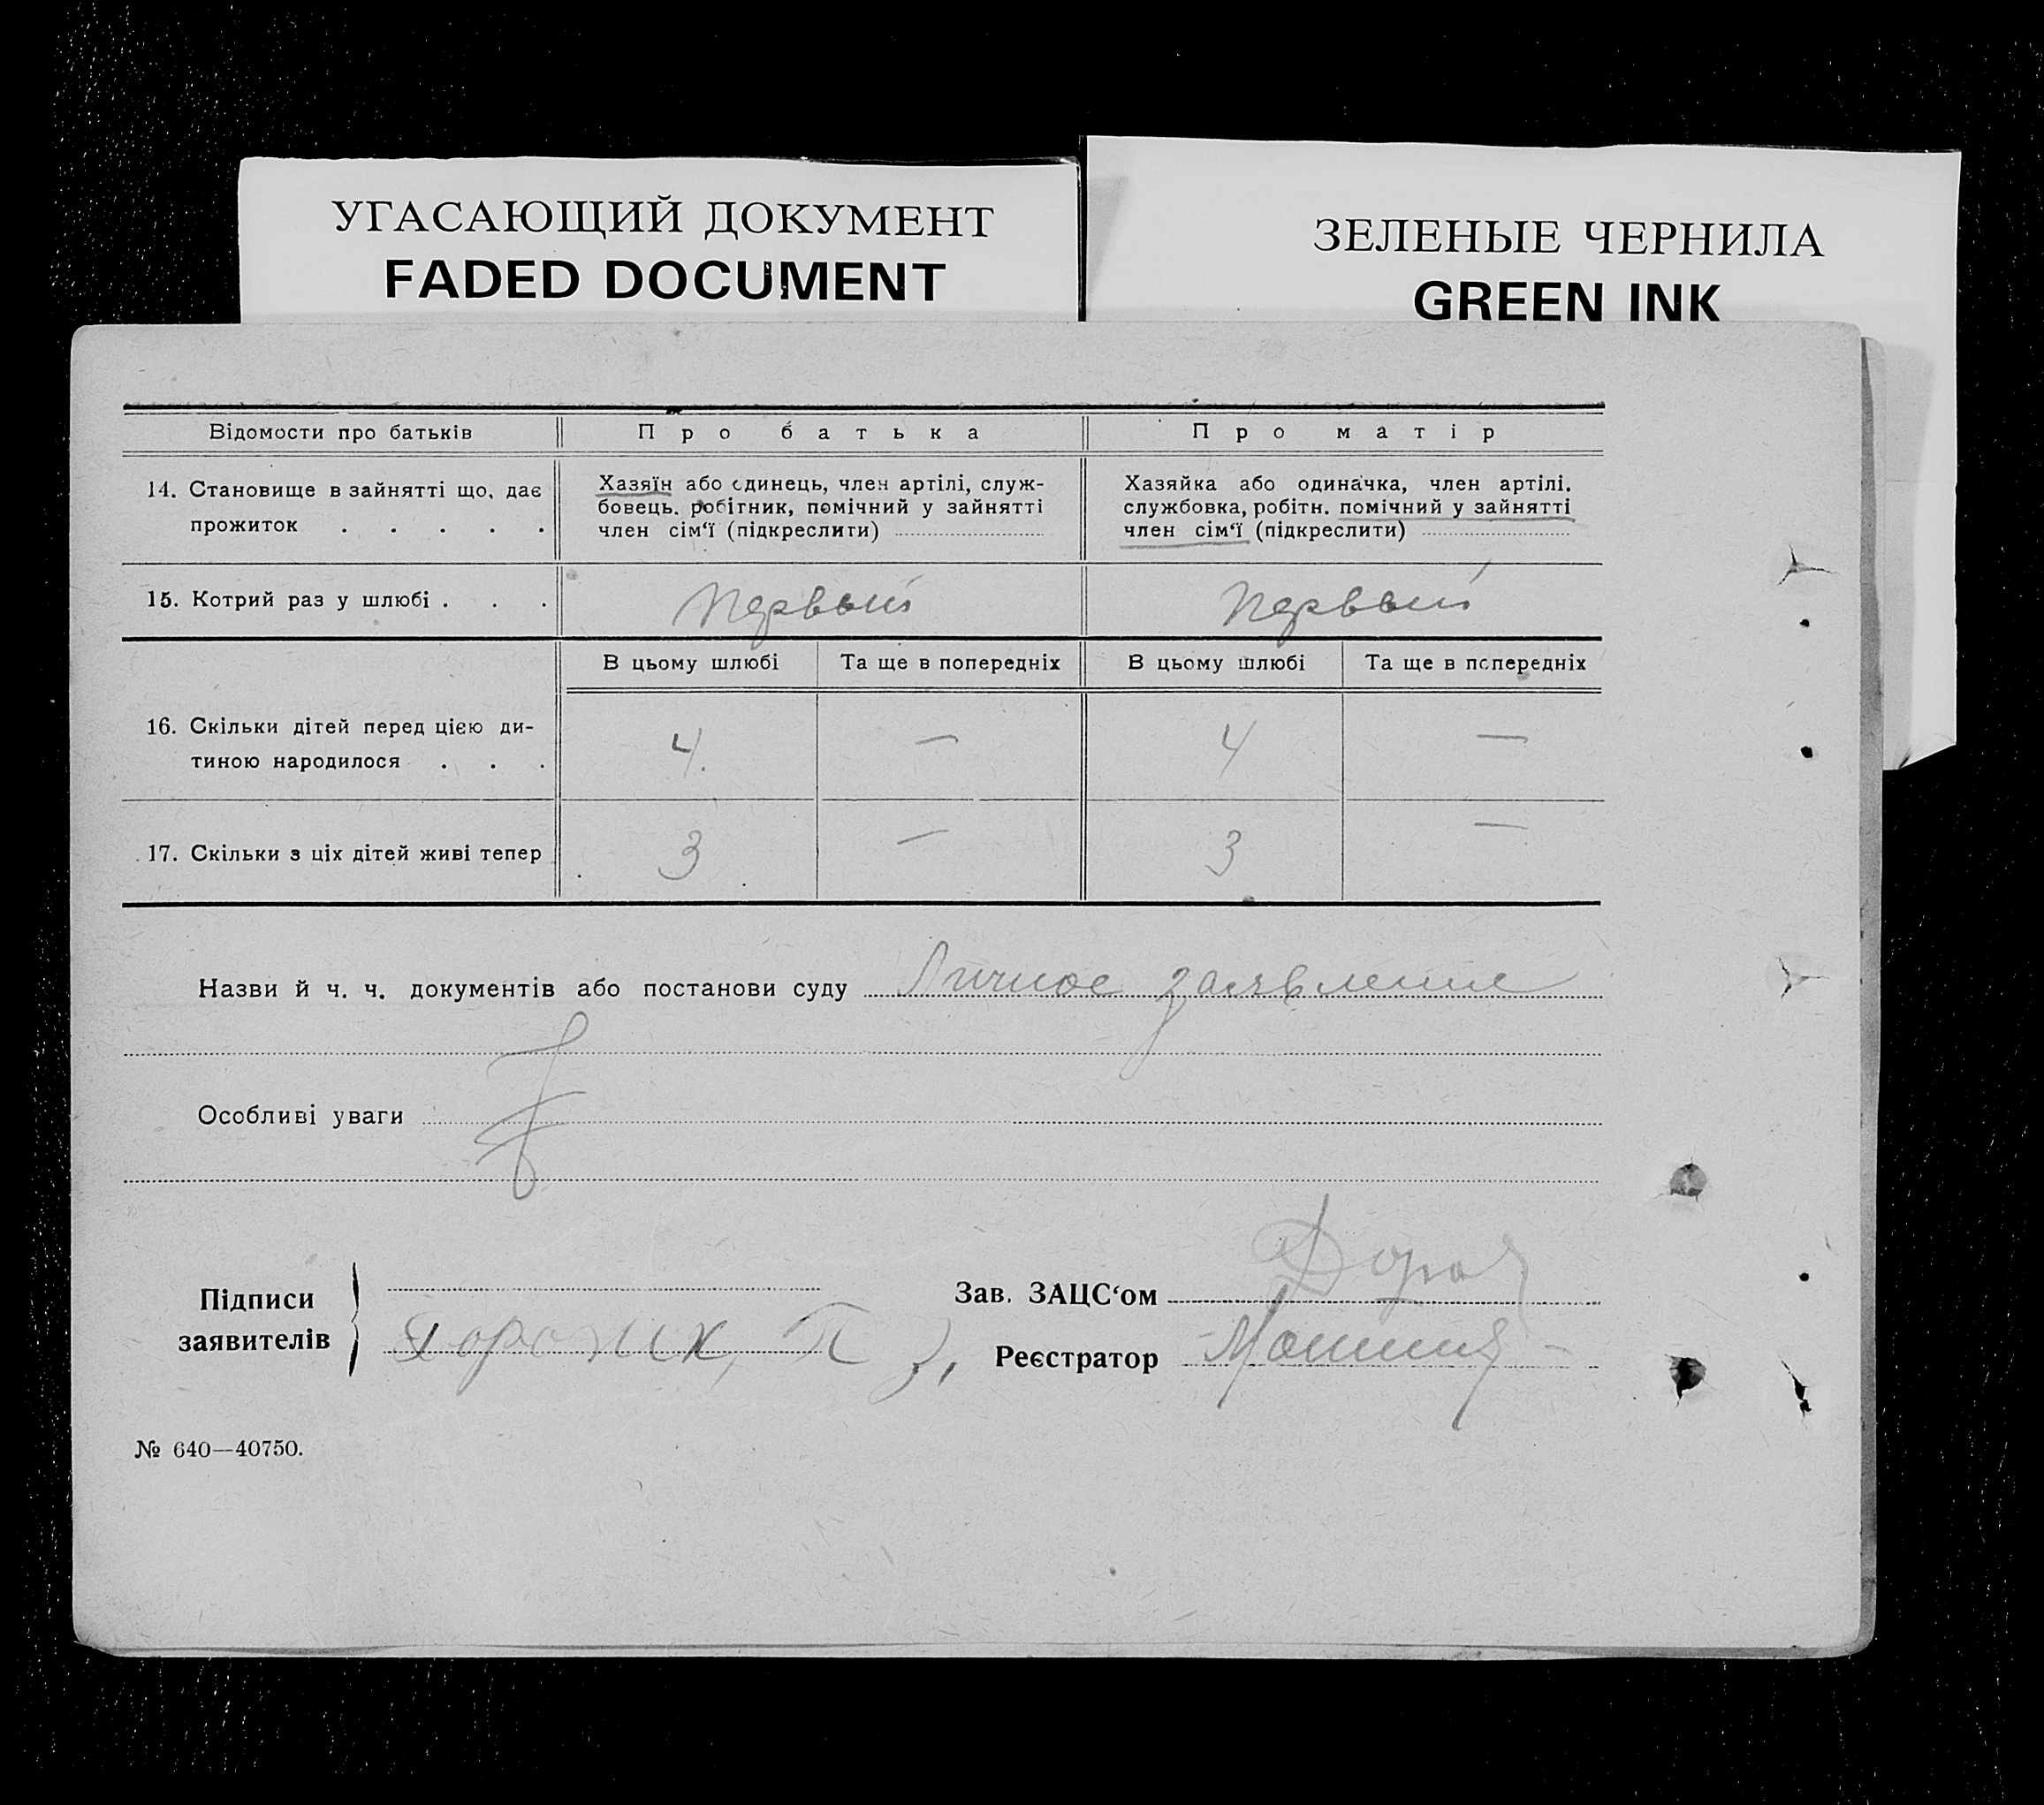 УГАСАЮЩИЙ ДОКУМЕНТ
FADED DOCUMENT
ЗЕЛЕНЫЕ ЧЕРНИЛА
GREEN INK
Відомости про батьків
Про батька
Про матір
14. Становище в зайнятті що, дає
прожиток . . . . .
Хазяїн або єдинець, член артілі, служ-
бовець. робігник, помічний у зайнятті
член сім‘ї (підкреслити)
Хазяйка або одиначка, член артілі.
службовка, робітн. помічний у зайнятті
член сім‘ї (підкреслити)
15. Котрий раз у шлюбі . . .
первый
первый
В цьому шлюбі
Та ще в попередніх
В цьому шлюбі
Та ще в попередніх
16. Скільки дітей перед цією ди-
тиною народилося . . .
4. — 4 —
17. Скільки з ціх дітей живі тепер
3 — 3 —
Назви й ч. ч. документів або постанови суду Личное заявление
Особливі уваги
Підписи
заявителів
Зав. ЗАЦС‘ом
Реєстратор
№ 640—40750.